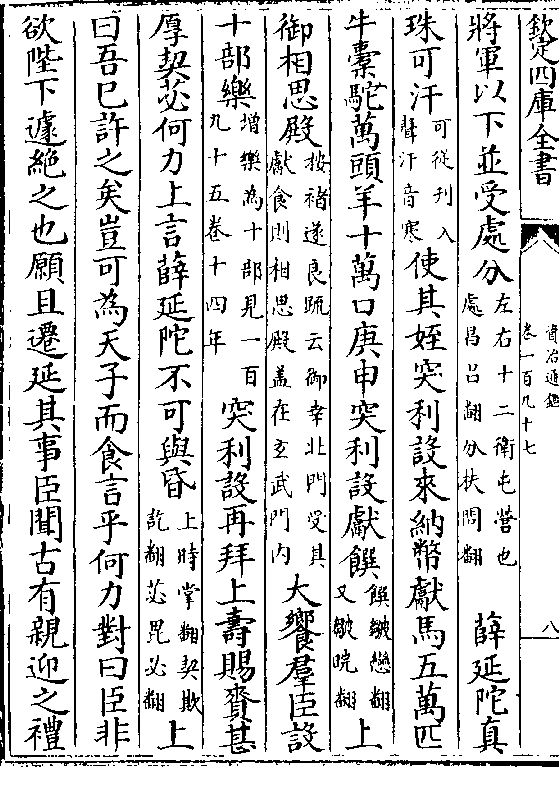 欽定四庫全書
資治通鑑
卷一百九十七
八
將軍以下並受處分左右十二衛屯營也處昌呂翻分扶問翻薛延陀真
珠可汗可從刊入聲汗音寒使其姪突利設來納幣獻馬五萬匹
牛橐駝萬頭羊十萬口庚申突利設獻饌饌皺戀翻又皺晥翻上
御相思殿按褚遂良疏云御幸北門受其獻食則相思殿蓋在玄武門内大饗羣臣設
十部樂增樂為十部見一百九十五卷十四年突利設再拜上壽賜賚甚
厚契苾何力上言薛延陀不可與昏上時掌翻契欺訖翻苾毘必翻上
曰吾已許之矣豈可為天子而食言乎何力對曰臣非
欲陛下遽絶之也願且遷延其事臣聞古有親迎之禮